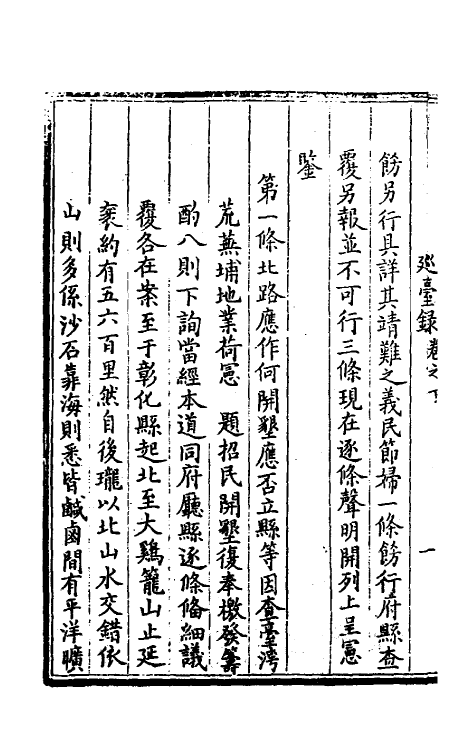 巡臺録卷之下 一
餙另行具詳其靖難之義民節婦一條餙行府縣查
覆另報並不可行三條現在逐條聲明開列上呈憲
鑒
第一條北路應作何開墾應否立縣等因查臺湾
荒蕪埔地業荷憲 題招民開墾復奉檄發籌
酌八則下詢當經本道同府廳縣逐條偹細議
覆各在案至于彰化縣起北至大鷄籠山止延
袤約有五六百里然自後瓏以北山水交錯依
山則多係沙石靠海則悉皆鹹鹵間有平洋曠